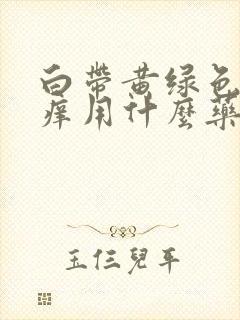 白带黄绿色
痒用什麼藥
玉仨兒平